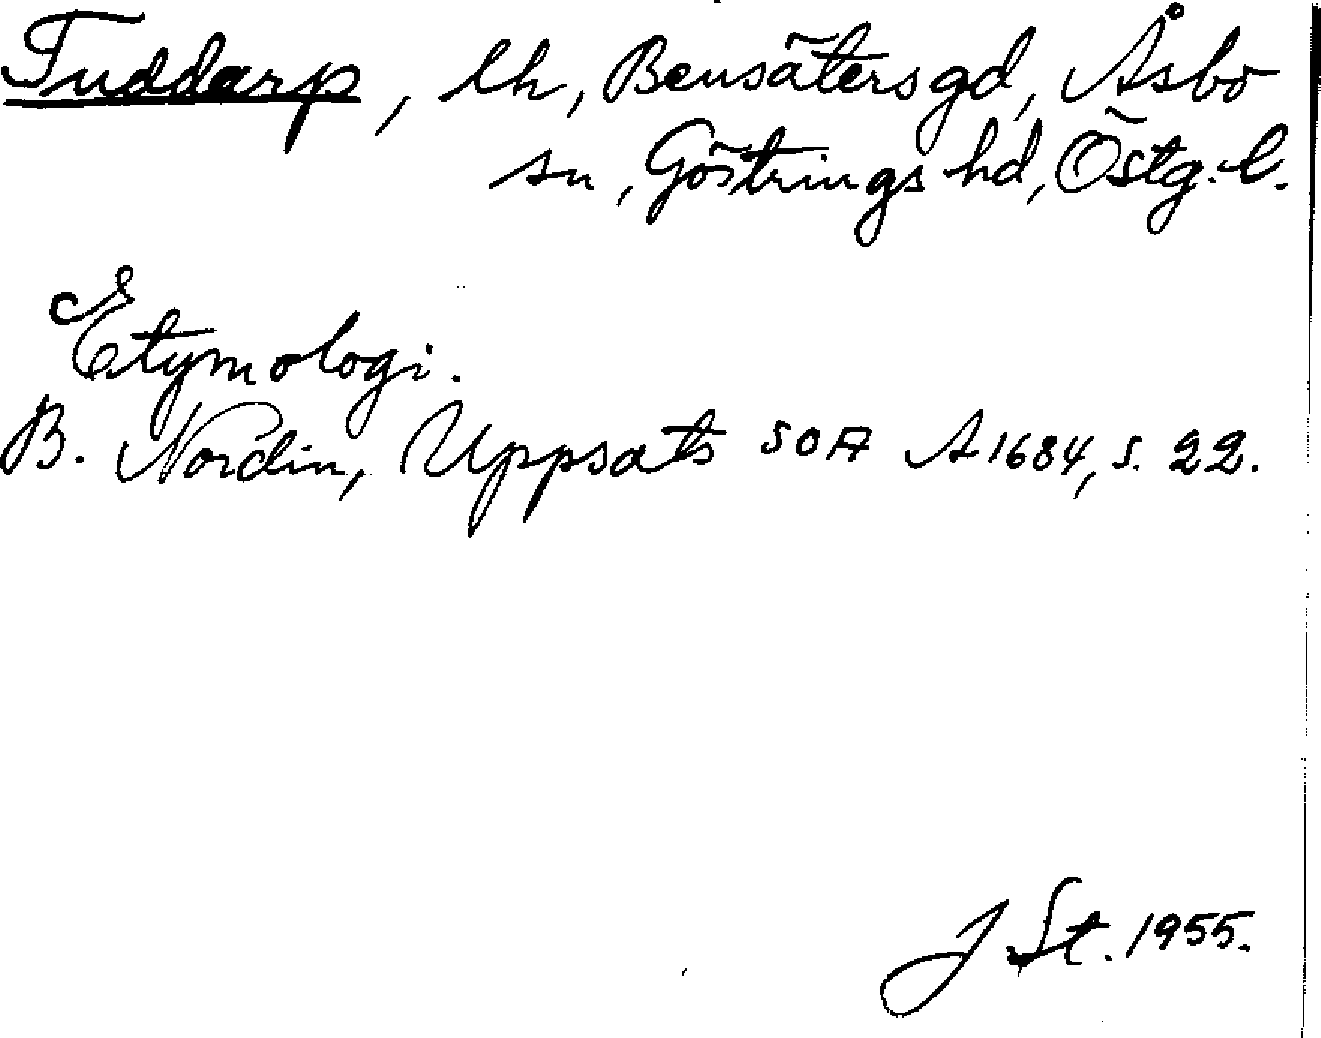 Tuddarp, lh, Bensätersgd, Åsbo
sn, Göstrings hd, Östg. l.
Etymologi.
B. Nordin, Uppsats SOA A1684, s. 22.
J St. 1955.